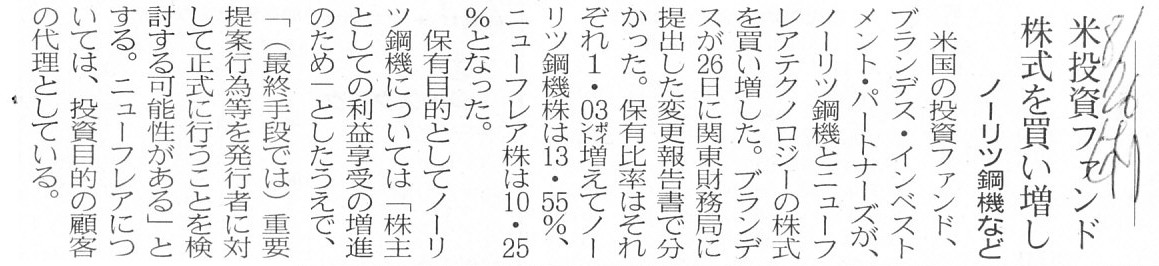 米投資ファンド
株式を買い増し
ノーリツ鋼機など
米国の投資ファンド、
ブランデス・インベスト
メント・パートナーズが、
ノーリツ鋼機とニューフ
レアテクノロジーの株式
を買い増した。ブランデ
スが26日に関東財務局に
提出した変更報告書で分
かった。保有比率はそれ
ぞれ1・03㌽増えてノー
リツ鋼機株は13・55%、
ニューフレア株は10・25
%となった。
保有目的としてノーリ
ツ鋼機については「株主
としての利益享受の増進
のため―としたうえで、
「(最終手段では)重要
提案行為等を発行者に対
して正式に行うことを検
討する可能性がある」と
する。ニューフレアにつ
いては、投資目的の顧客
の代理としている。